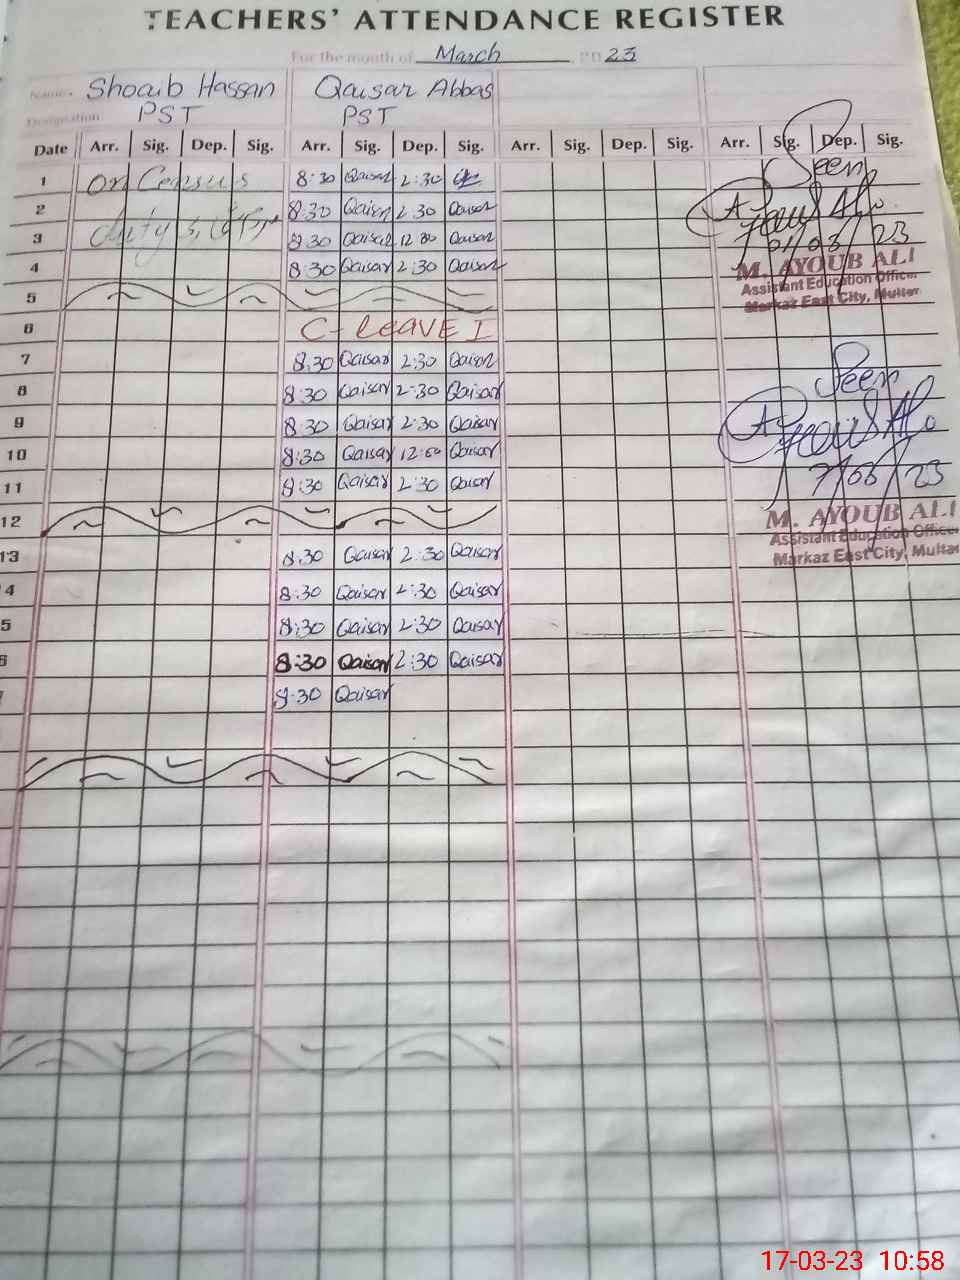 TEACHERS' ATTENDANCE REGISTER
For the month of March 2023
Name. Shoaib Hassan Qaisar Abbas
Designation PST PST
Date Arr. Sig. Dep. Sig. Arr. Sig. Dep. Sig. Arr. Sig. Dep. Sig. Arr. Sig. Dep. Sig.
Seen
1 On Census 8:30 Qaisar 2:30
2 duty 8:30 Qaisar 2:30 Qaisar
3 8:30 Qaisar 12:30 Qaisar 01/03/23
4 8:30 Qaisar 2:30 Qaisar
M. AYOUB ALI
Assistant Education Officer
Markaz East City, Multan
5
6 C-Leave I
7 8:30 Qaisar 2:30 Qaisar
Seen
8 8:30 Qaisar 2:30 Qaisar
9 8:30 Qaisar 2:30 Qaisar
10 8:30 Qaisar 12:00 Qaisar
11 8:30 Qaisar 2:30 Qaisar 7/03/23
12
M. AYOUB ALI
Assistant Education Office
Markaz East City, Multan
13 8:30 Qaisar 2:30 Qaisar
4 8:30 Qaisar 2:30 Qaisar
5 8:30 Qaisar 2:30 Qaisar
6 8:30 Qaisar 2:30 Qaisar
8:30 Qaisar
17-03-23 10:58